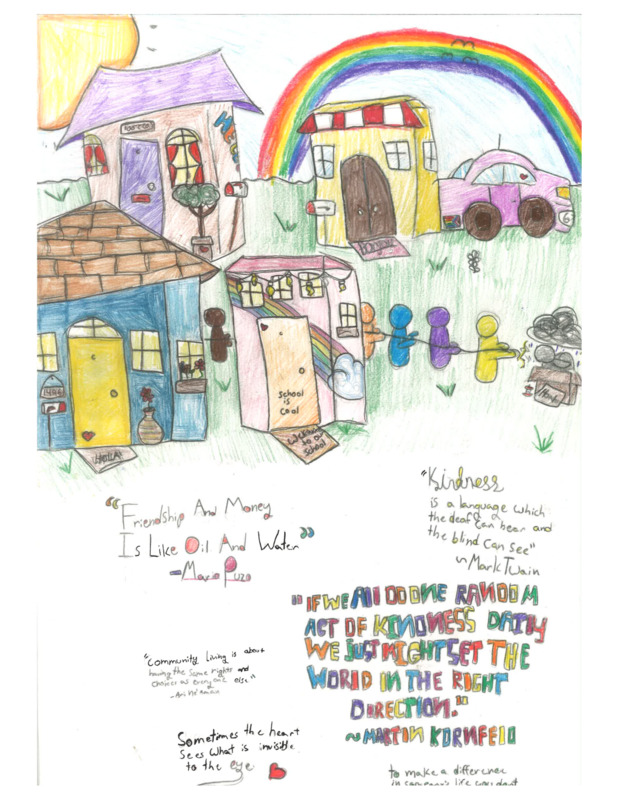 school
is
cool
Welcome
to our
school
"Kindness
is a language which
the deaf can hear and
the blind can see"
~ Mark Twain
"Friendship And Money
Is Like Oil And Water"
-Mario Puzo
"IF WE All DO ONE RANDOM
ACT OF KINDNESS DAILY
WE JUST MIGHT SET THE
WORLD IN THE RIGHT
DIRECTION."
~MARTIN KORNFELD
"Community Living is about
having the same rights and
choices as everyone else"
Sometimes the heart
sees what is invisible
to the eye
to make a difference
in someone's life you don't